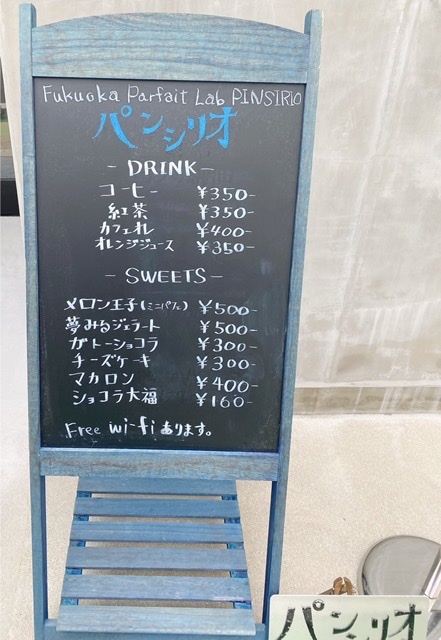 Fukuoka Parfait Lab PINSIRIO
パンシリオ
- DRINK -
コーヒー ¥350-
紅茶 ¥350-
カフェオレ ¥400-
オレンジジュース ¥350-
- SWEETS -
メロン王子(ミニパフェ) ¥500-
夢みるジェラート ¥500-
ガトーショコラ ¥300-
チーズケーキ ¥300-
マカロン ¥400-
ショコラ大福 ¥160-
Free wi-fiあります。
パンリオ